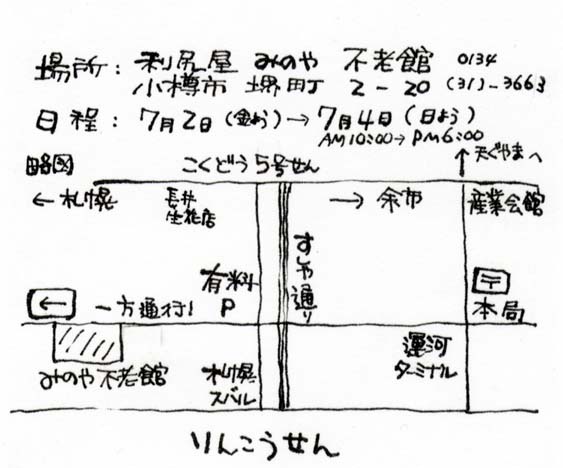 場所: 利尻屋 みのや 不老館 0134
小樽市 堺町 2-20 (31)-3663
日程: 7月2日(金よう)→7月4日(日よう)
AM10:00→PM6:00
略図
こくどう5号せん
↑天ぐやまへ
←札幌
長井
生花店
→余市
産業会館
すしや通り
有料
P
〒
本局
←
一方通行!
みのや不老館
札幌
スバル
運河
ターミナル
りんこうせん